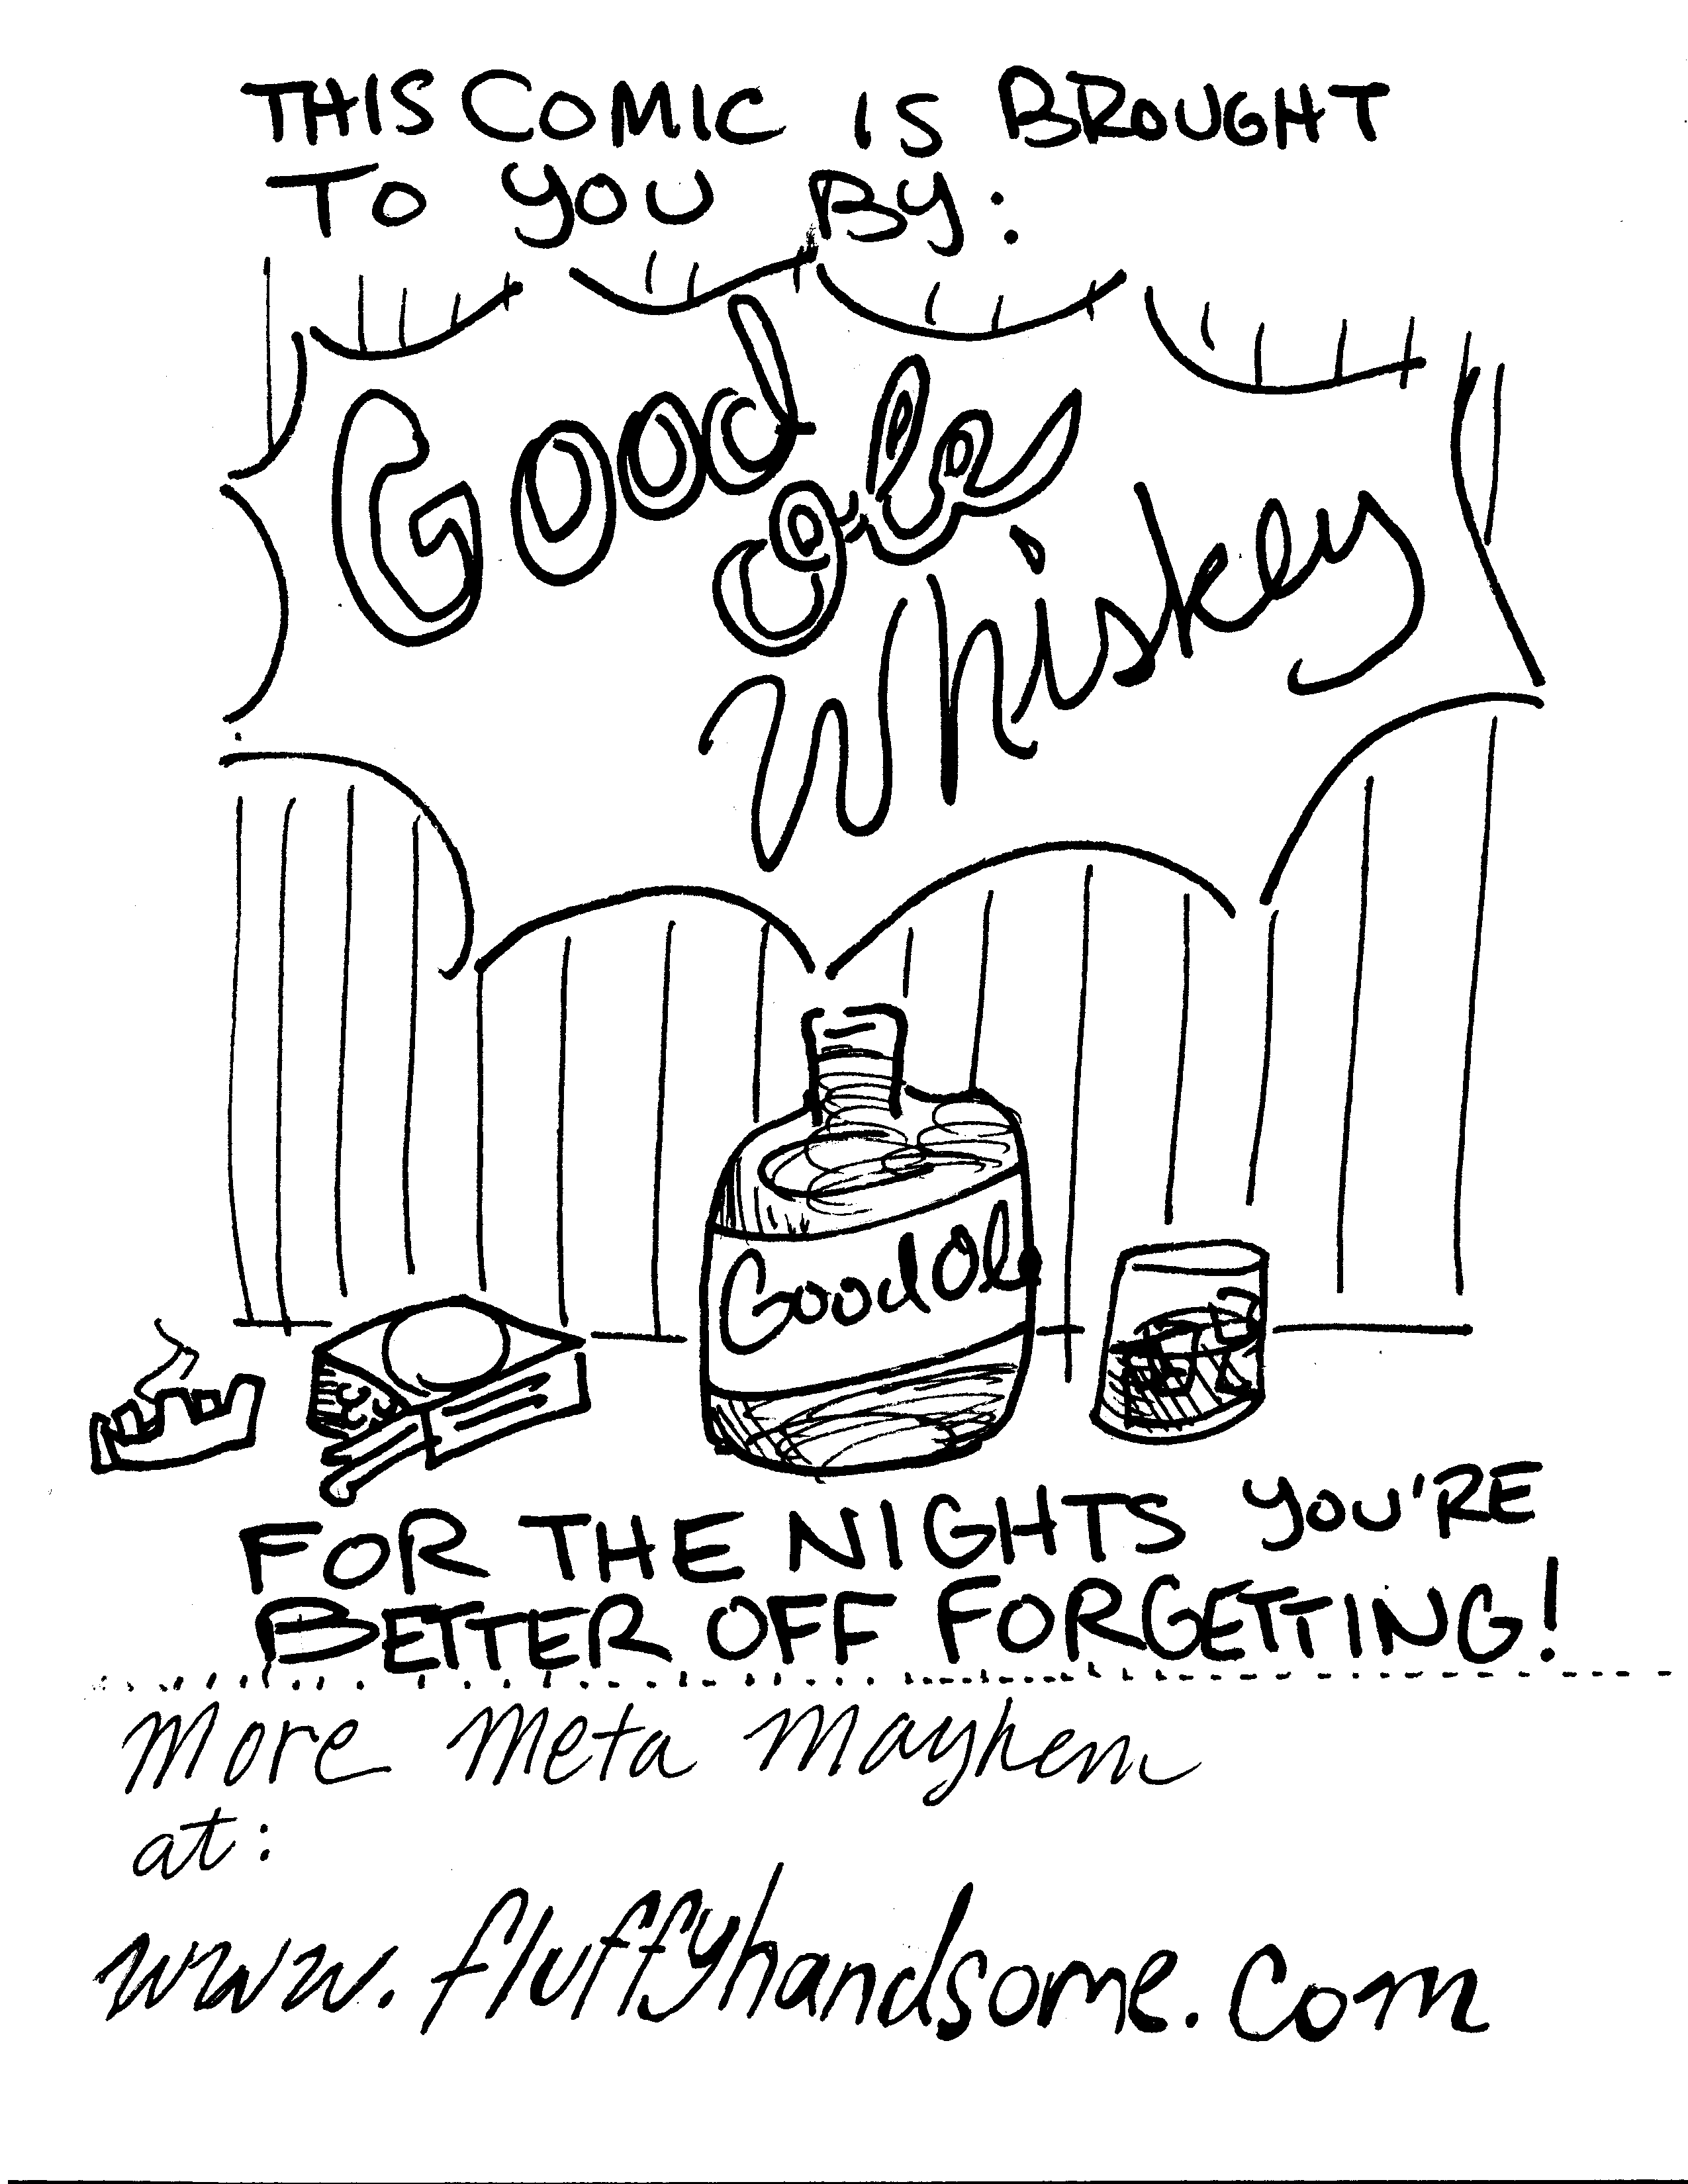 THIS COMIC IS BROUGHT
TO YOU BY:
Good
ole
Whiskey
Good Ole
FOR THE NIGHTS YOU'RE
BETTER OFF FORGETTING!
More Meta Mayhem
at:
www.fluffyhandsome.com